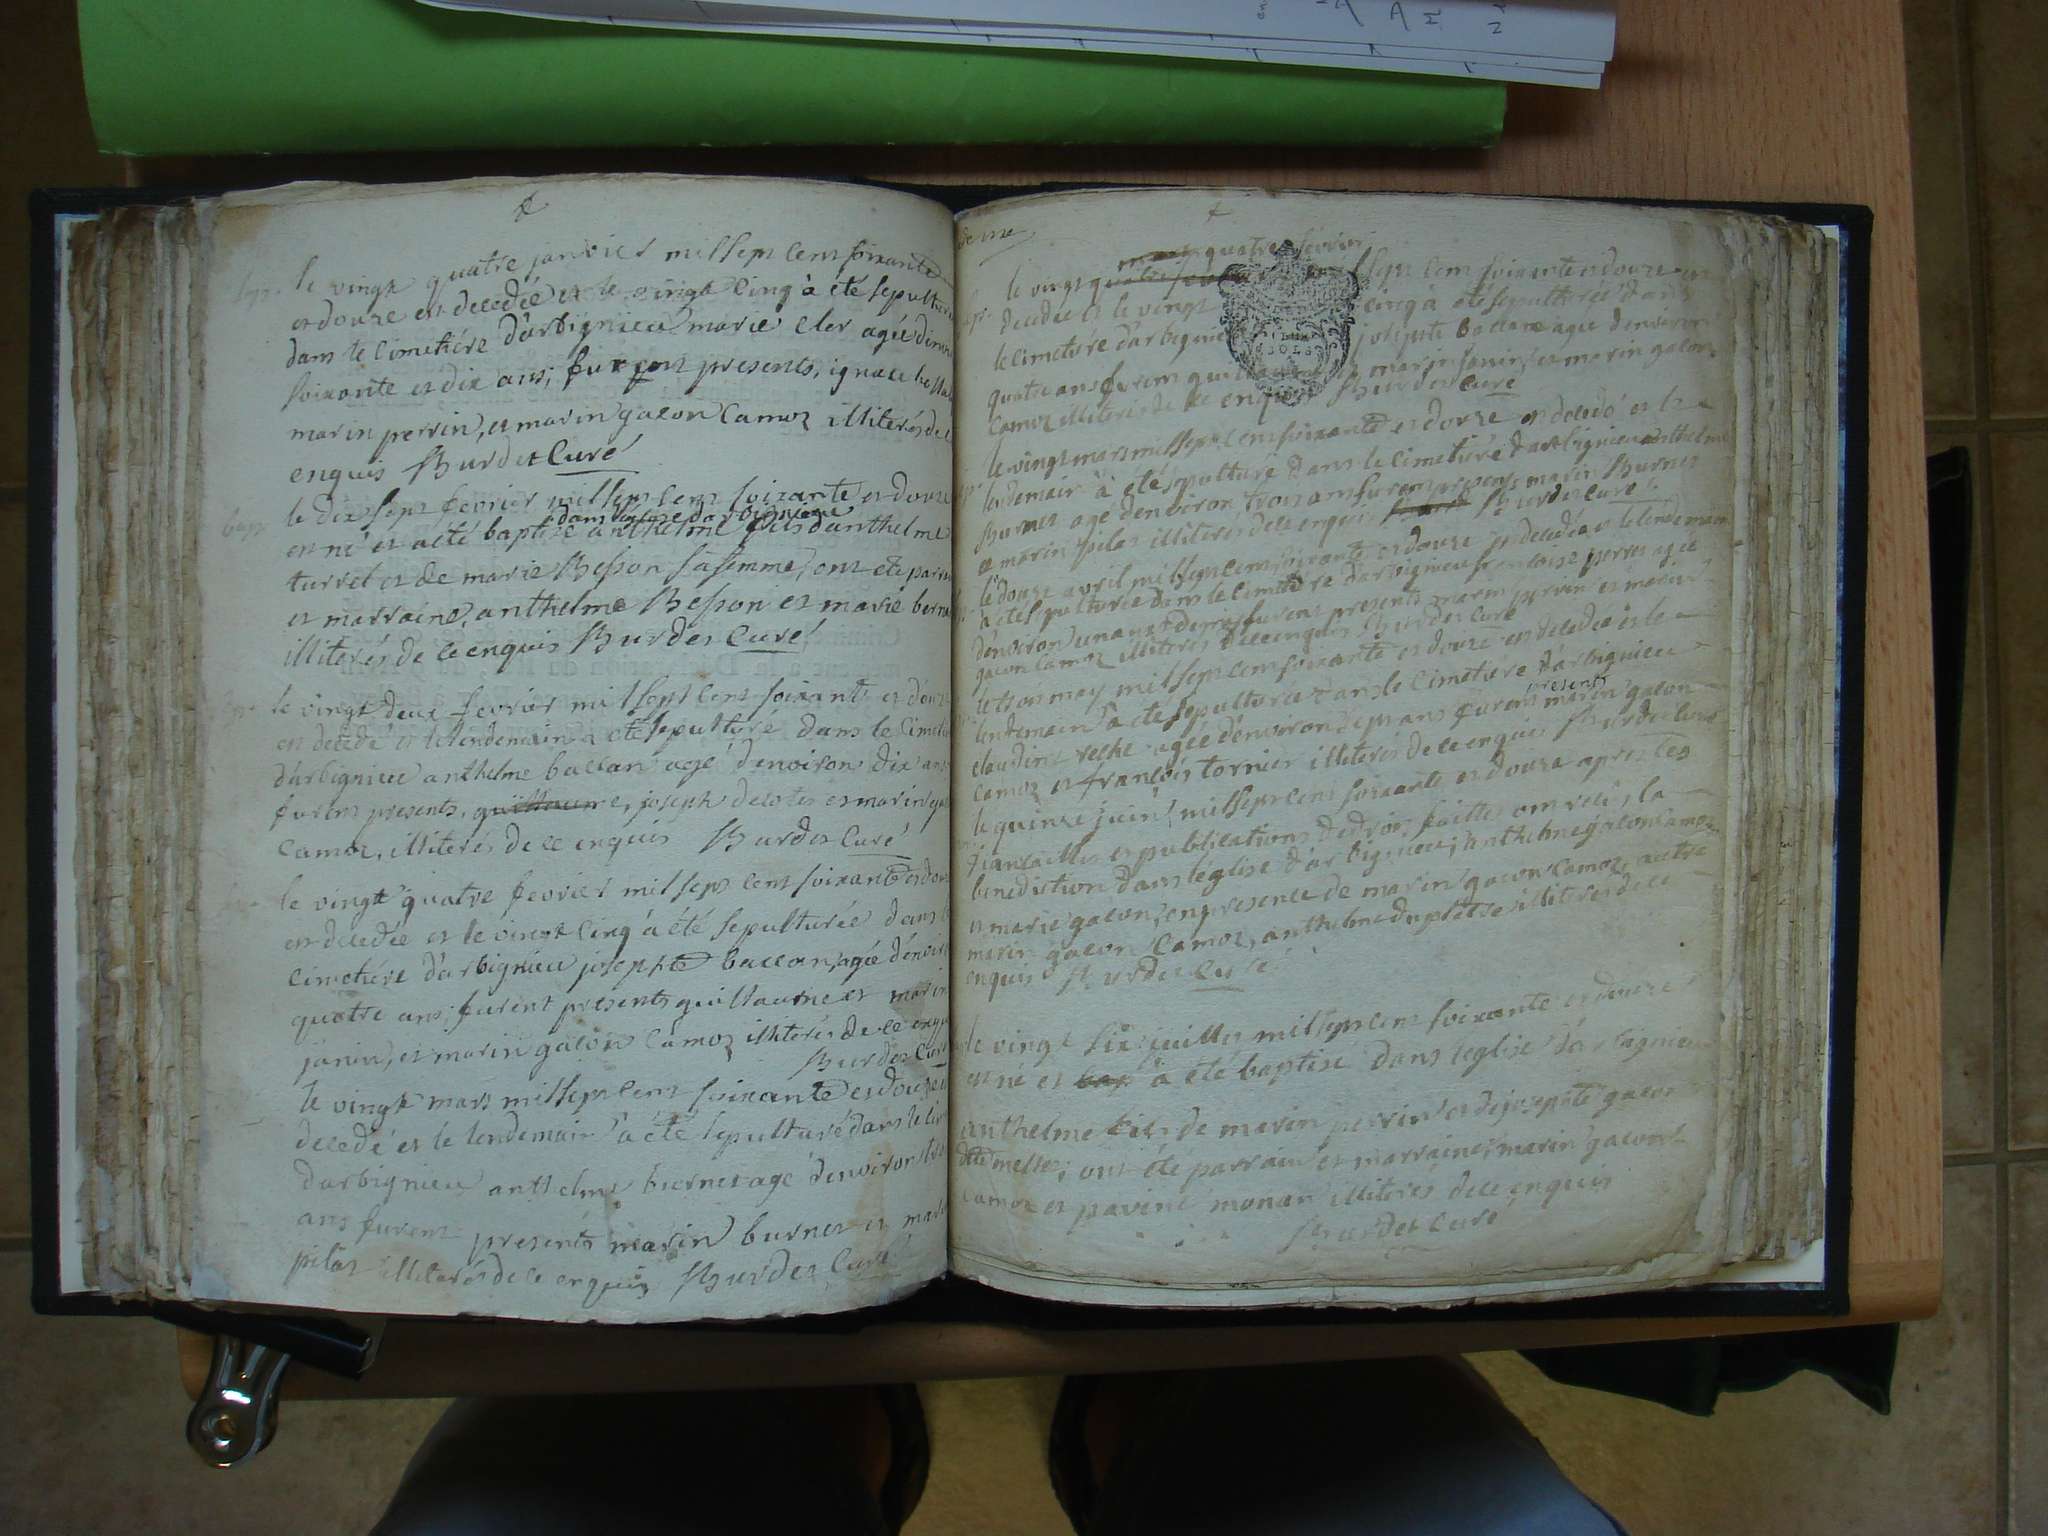 le vingt quatre janvier mil sept cent soixante
et douze est decedée et le vingt cinq à été sepulturée
dans le cimetiére d'arbignieu marie cler agée d'environ
soixante et dix ans; furent presents, ignace
marin perrin, et marin gacon camoz illiterés de ce
enquis Burdet Curé
bapt. le dix sept fevrier mil sept cent soixante et douze
dans l'eglise d'arbignieu
est né et a été baptisé anthelme fils d'anthelme
turrel et de marie Besson sa femme, ont été parrain
et marraine, anthelme Besson et marie
illiterés de ce enquis Burdet Curé
le vingt deux fevrier mil sept cent soixante et douze
est decedé et le lendemain a été sepulturé dans le cimetiére
d'arbignieu anthelme baccan agé d'environ dix ans
furent presents, guillaume, joseph decotes et marin gacon
Camoz, illiterés de ce enquis Burdet Curé
le vingt quatre fevrier mil sept cent soixante et douze
est decedée et le vingt cinq à été sepulturée dans le
cimetiére d'arbignieu josephte baccan, agée d'environ
quatre ans; furent presents guillaume et marin
janin, et marin gacon camoz illiterés de ce enquis
Burdet Curé
le vingt mars mil sept cent soixante et douze est
decedé et le lendemain à été sepulturé dans le cimetiére
d'arbignieu anthelme burnet agé d'environ trois
ans furent presents marin burnet et marin
pilat illiterés de ce enquis Burdet Curé
quatre fevrier
le vingt sept cent soixante et douze est
decedée et le vingt cinq à été sepulturée dans
le cimetiére d'arbignieu josephte baccan agée d'environ
quatre ans furent guillaume marin janin et marin gacon
camoz illiterés de ce enquis Burdet Curé
le vingt mars mil sept cent soixante et douze est decedé et le
lendemain à été sepulturé dans le cimetiére d'arbignieu anthelme
Burnet agé d'environ trois ans furent presents marin Burnet
et marin pilat illiterés de ce enquis Burdet Curé
le douze avril mil sept cent soixante et douze est decedée et le lendemain
a été sepulturée dans le cimetiére d'arbignieu francoise perret agée
d'environ un an et demy furent presents marin perrin et marin
gacon camoz illiterés de ce enquis Burdet Curé
le trois may mil sept cent soixante et douze est decedée et le
lendemain à été sepulturée dans le cimetiére d'arbignieu
presents
claudine agée d'environ sept ans furent marin gacon
camoz et françois tornier illiterés de ce enquis Burdet Curé
le quinze juin mil sept cent soixante et douze apres les
fiancailles et publications de droit faittes ont reçu la
benediction dans l'église d'arbignieu; anthelme gacon camoz
et marie gacon, en presence de marin gacon camoz, autre
marin gacon camoz, anthelme duplatre illiterés de ce
enquis Burdet Curé
le vingt six juillet mil sept cent soixante et douze
est né et bap à été baptisé dans l'eglise d'arbignieu
anthelme fils de marin perrin et de josephte gacon
ont été parrain et marraine, marin gacon
camoz et monan illiterés de ce enquis
Burdet Curé